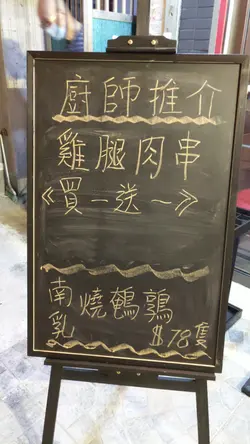 廚師推介
雞腿肉串
《買一送一》
南乳燒鵪鶉
$78隻